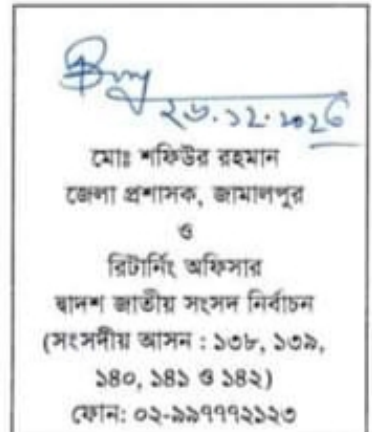 ২৬.১২.২০২৩
মোঃ শফিউর রহমান
জেলা প্রশাসক, জামালপুর
ও
রিটার্নিং অফিসার
দ্বাদশ জাতীয় সংসদ নির্বাচন
(সংসদীয় আসন : ১৩৮, ১৩৯,
১৪০, ১৪১ ও ১৪২)
ফোন: ০২-৯৯৭৭৭২১২৩